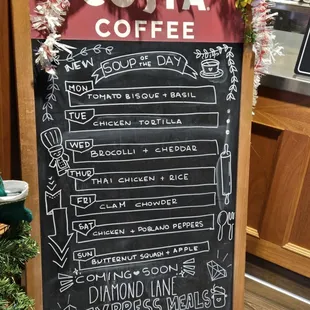 COSTA
COFFEE
NEW
SOUP OF THE DAY
MON
TOMATO BISQUE + BASIL
TUE
CHICKEN TORTILLA
WED
BROCOLLI + CHEDDAR
THUR
THAI CHICKEN + RICE
FRI
CLAM CHOWDER
SAT
CHICKEN + POBLANO PEPPERS
SUN
BUTTERNUT SQUASH + APPLE
COMING SOON
DIAMOND LANE
EXPRESS MEALS